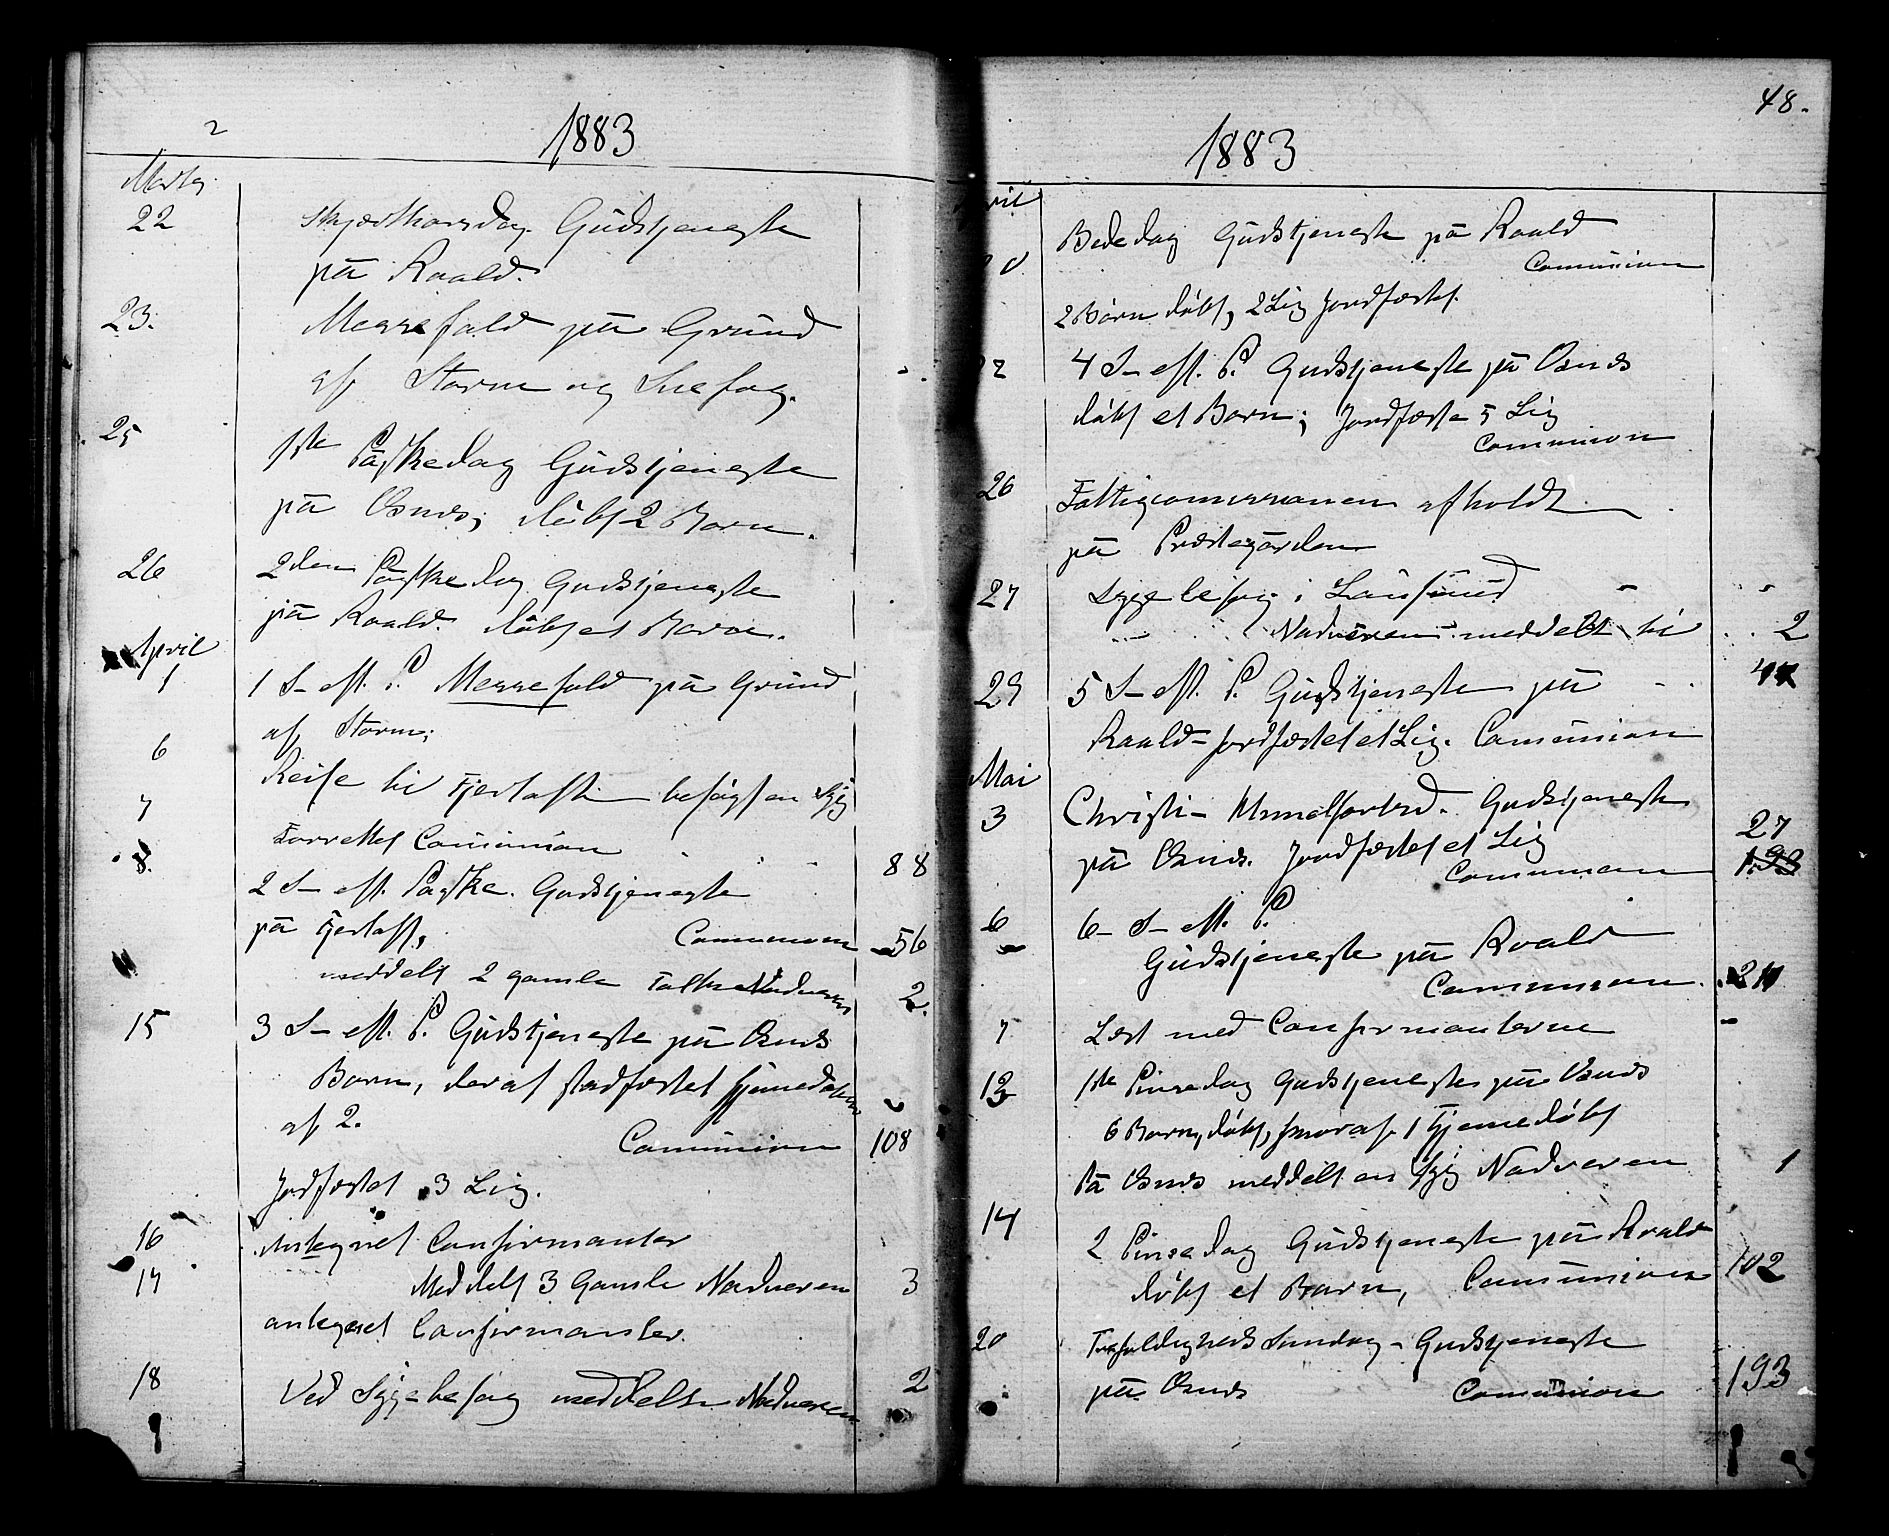 2
1883
Marts
22 Skjærthorsdag. Gudstjeneste
på Roald.
23. Messefald på Grund
af Storm og Snefog.
25 1ste Påskedag Gudstjeneste
på Osnes; døbt 2 Børn.
26 2den Påskedag Gudstjeneste
på Roald. døbt et Barn.
April
1 1 S- eft. P. Messefald på Grund
af Storm;
6 Reise til Fjertoften besøgt en Syg
7 Forrettet Comunion 88
8. 2 S- eft. Paaske. Gudstjeneste
på Fjertoft, Communion 56
meddelt 2 gamle Folk Nadveren 2.
15 3 S- eft. P. Gudstjeneste på Osnes
Børn, deraf stadfæstet hjemedåben
af 2.
Comunion 108
Jordfæstet 3 Lig.
16 Antegnet Confirmanter
17 Meddelt 3 Gamle Nadveren 3
antegnet Confirmanter.
18 Ved Sygebesøg meddeltes Nadveren 2
48.
1883
Bededag Gudstjeneste på Roald
Comunion
2 Børn døbt, 2 Lig Jordfæstet.
22 4 S- eft. P. Gudstjeneste på Osnes
døbt et Barn; Jordfæstet 5 Lig
Communion
26 Fattigcommissionen afholdt
på Præstegården
27 Sygebesøg i Lausund
Nadveren meddelt til 2
29 5 S- eft. P. Gudstjeneste på
Roald- jordfæstet et Lig. Comunion
Mai
3 Christi- Himmelfartsd. Gudstjeneste
på Osnes. Jordfæstet et Lig 27
Communion 193
6 6- S- eft. P.
Gudstjeneste på Roald
Communion.
7 Læst med Confirmanterne
13 1ste Pinsedag Gudstjeneste på Osnes
6 Børn, døbt, hvoraf 1 Hjemmedøbt
På Osnes meddelt en Syg Nadveren 1
14 2 Pinsedag Gudstjeneste på Roald
døbt et Barn, Comunion 102
20 Trefoldigheds Søndag- Gudstjeneste
på Osnes Comunion 193